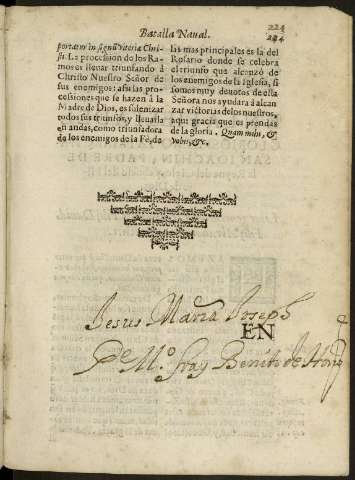 Batalla Naual.
224
portatur in signū victoria Chri-
sti. La procession de los Ra-
mos es lleuar triunfando á
Christo Nuestro Señor de
sus enemigos: assi las pro-
cessiones que se hazen à la
Madre de Dios, es solenizar
todos sus triunfos, y lleuarla
en andas, como triunfadora
de los enemigos de la Fé, de
las mas principales es la del
Rosario donde se celebra
el triunfo que alcanzó de
los enemigos de la Iglesia, si
somos muy deuotos de esta
Señora nos ayudará á alcan-
zar victorias de los nuestros,
aqui gracia que es prendas
de la gloria. Quam mihi, &
vobis, &c.
Jesus Maria Joseph
EN
De Mº. fray Benito de